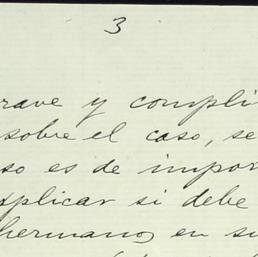 3
rave y compli
sobre el caso, se
so es de impor
xplicar si debe
hermano, en su